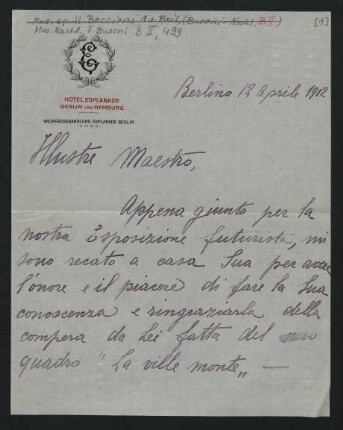 Mus. ep. U. Boccioni 1 + Beil. (Busoni-Nachl. B II) [1]
Mus. Nachl. F. Busoni B II, 499
E
HOTEL ESPLANADE
BERLIN UND HAMBURG
WEINGROSSHANDLUNG ESPLANADE BERLIN
Berlino 12 Aprile 1912
Illustre Maestro,
Appena giunto per la
nostra Esposizione futurista, mi
sono recato a casa Sua per avere
l'onore e il piacere di fare la Sua
conoscenza e ringraziarla della
compera da Lei fatta del
quadro "La ville monte„ —